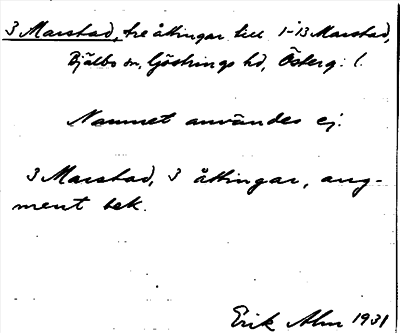 3 Marstad, tre åttingar till 1-13 Marstad,
Bjälbo sn, Göstrings hd, Österg: l.
Namnet användes ej.
3 Marstad, 3 åttingar, aug-
ment bek.
Erik Alm 1931